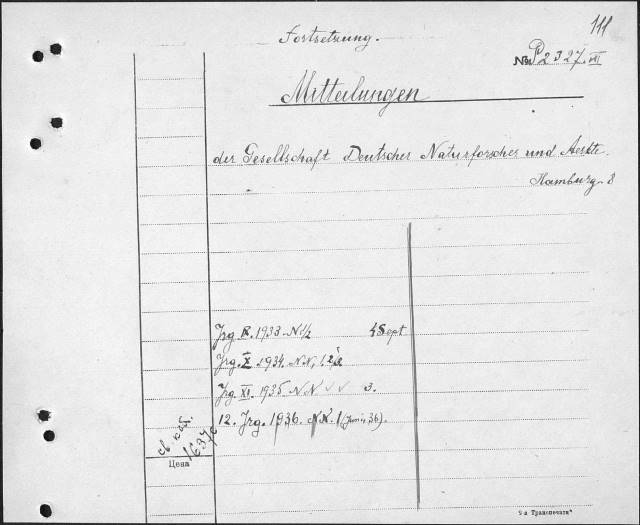 111
Fortsetzung.
№ P2327.VII
Mitteilungen
der Gesellschaft Deutscher Naturforscher und Aerzte.
Hamburg
Jrg. 1933. N 1/2 4 Sept
Jrg. X. 1934. N N, 1. 2, 3
Jrg. XI. 1935 N N ✓ ✓ 3.
12. Jrg. 1936. N N. 1 (Juni, 36).
Цена